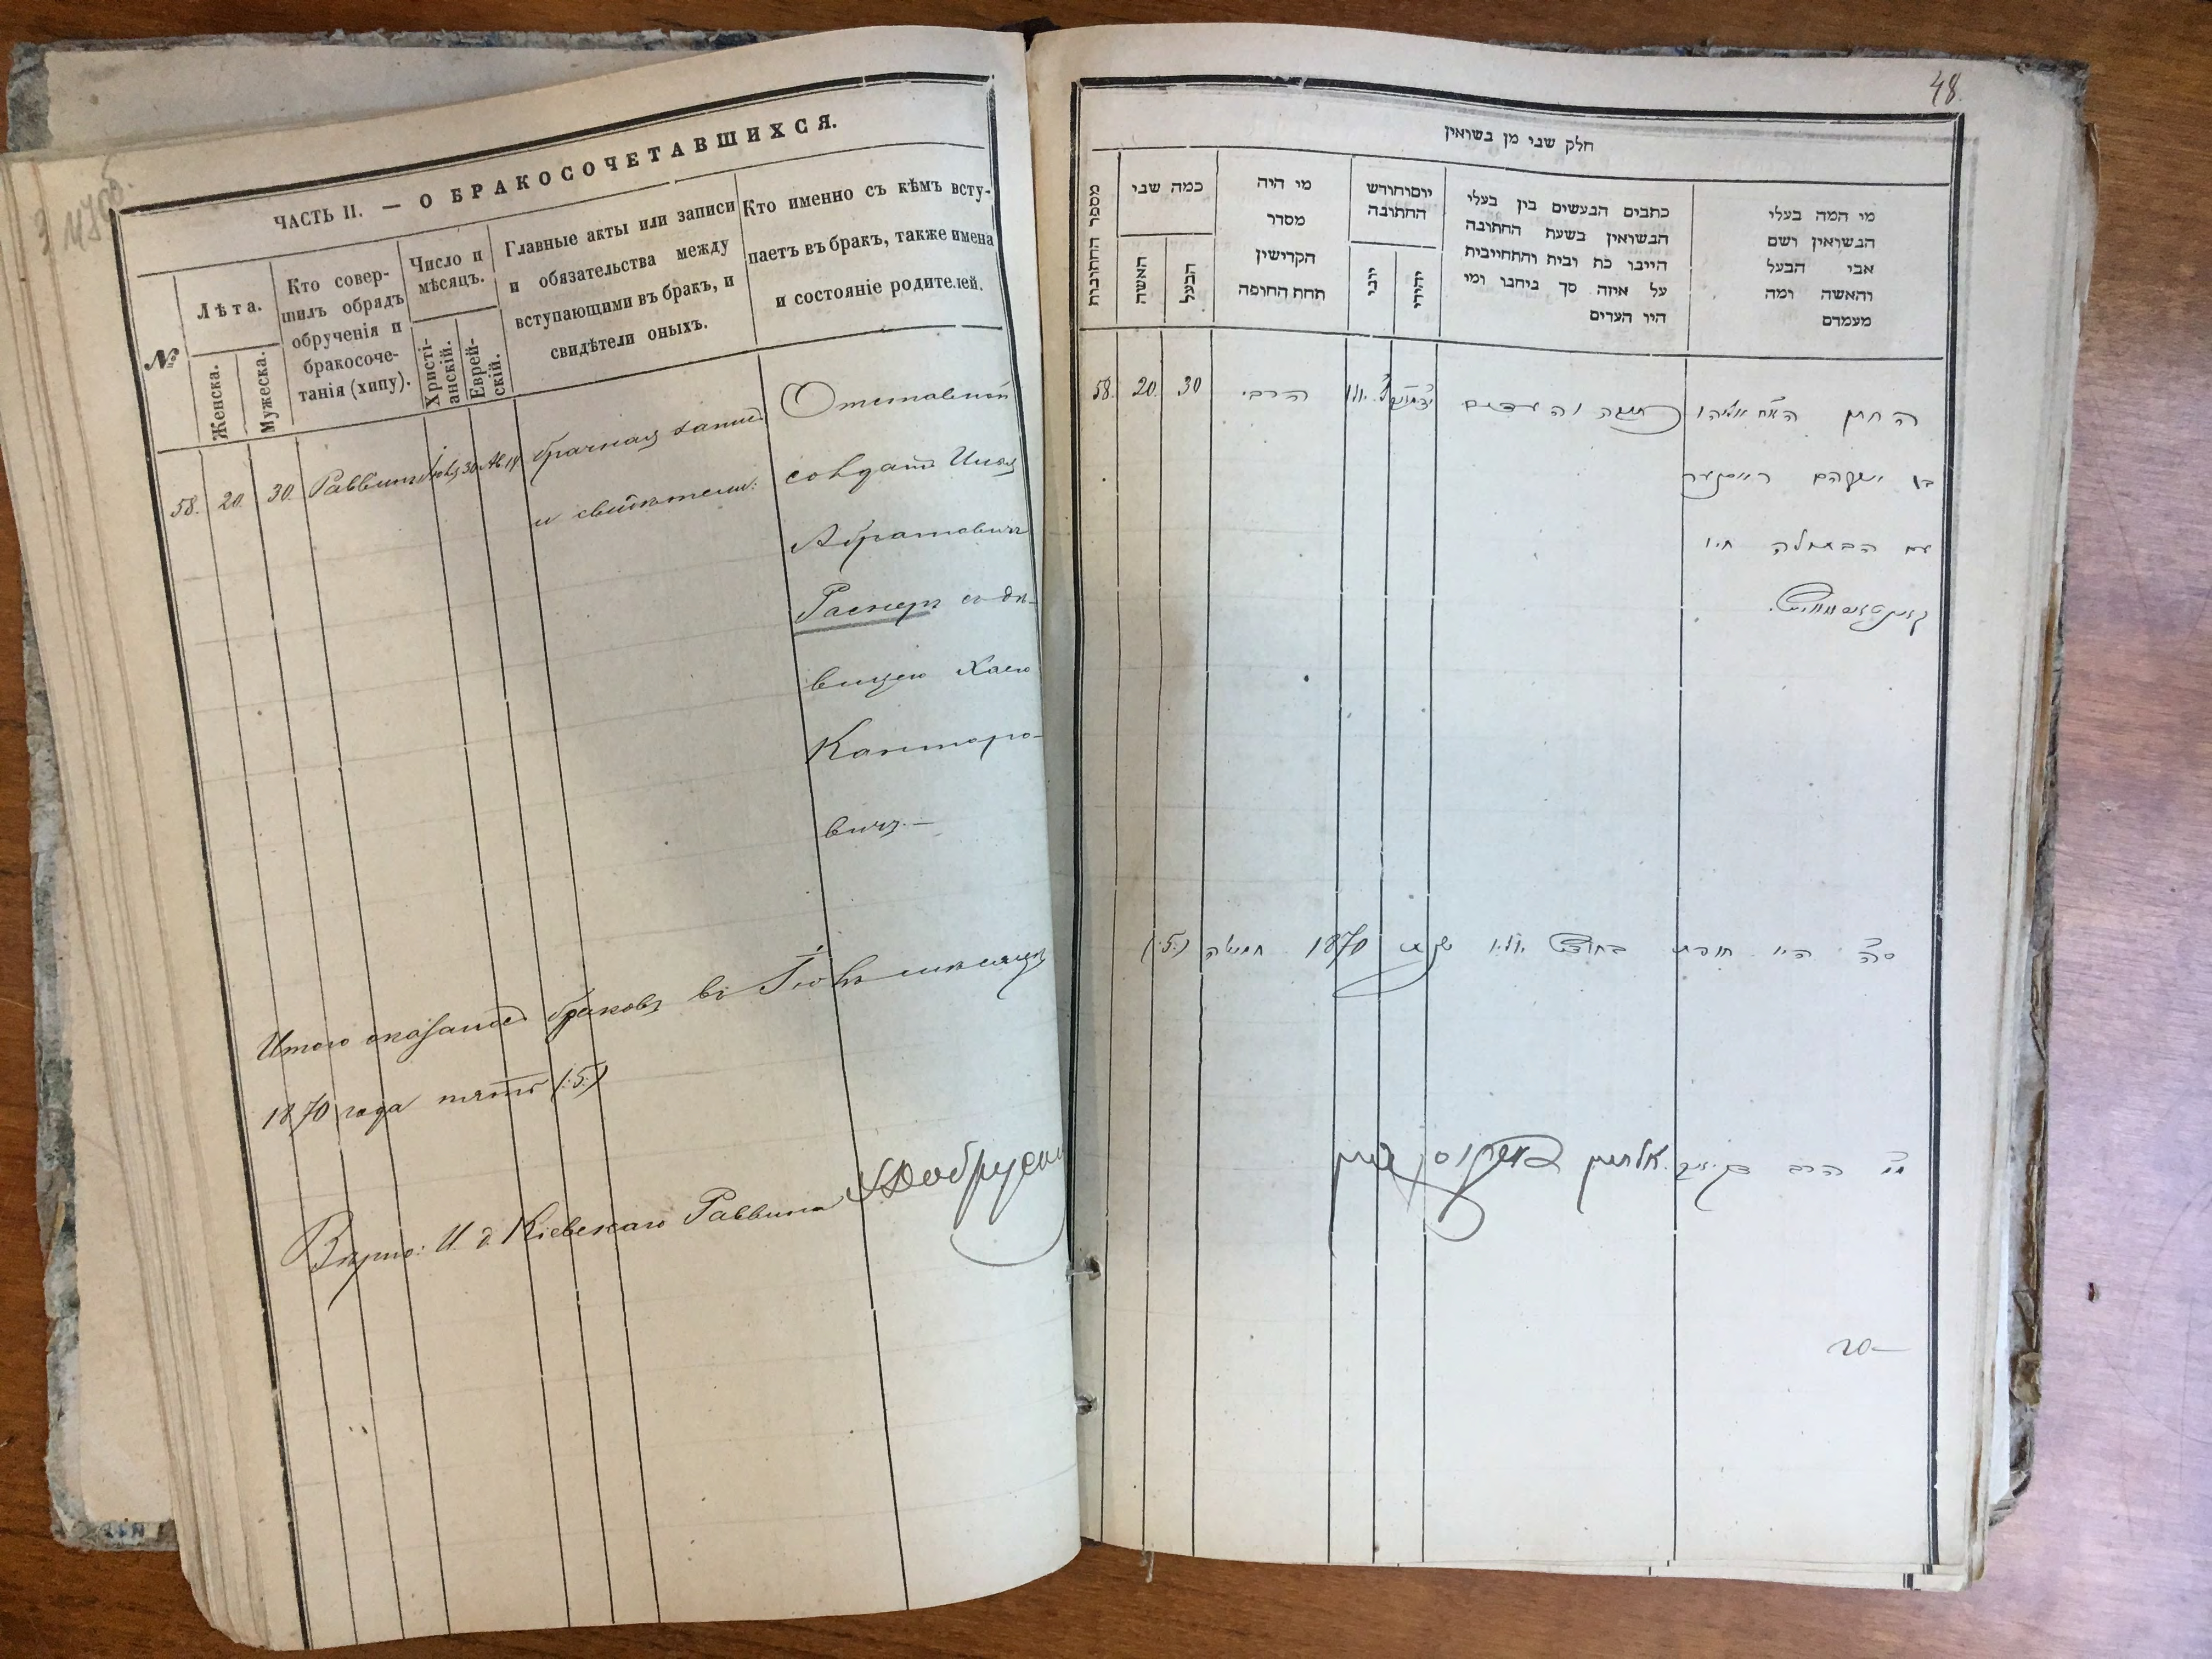 ЧАСТЬ II. — О БРАКОСОЧЕТАВШИХСЯ.
№
Лѣта.
Женска.
Мужеска.
Кто совер-
шилъ обрядъ
обрученія и
бракосоче-
танія (хипу).
Число и
мѣсяцъ.
Христі-
анскій.
Еврей-
скій.
Главные акты или записи
и обязательства между
вступающими въ бракъ, и
свидѣтели оныхъ.
Кто именно съ кѣмъ всту-
паетъ въ бракъ, также имена
и состояніе родителей.
58. 20. 30. Раввинъ Іюль 30 Ав. 14
брачная запись
и свидѣтели:
Отставной
солдатъ Илья
Абрамовичъ
Раснеръ съ дѣ-
вицею Хаею
Канторо-
вичъ.—
Итого оказалось браковъ въ Іюлѣ мѣсяцѣ
1870 года пять (:5:)
Вѣрно: И. д. Кіевскаго Раввина
48.
חלק שני מן נשואין
מספר החתונות
כמה שני
האשה
הבעל
מי היה
מסדר
הקדישין
תחת החופה
יום וחודש
החתונה
יוני
יהודי
כתבים הנעשים בין בעלי
הנשואין בשעת החתונה
היינו כת ובית והתחייבית
על איזה סך ביחבו ומי
היו הערים
מי המה בעלי
הנשואין ושם
אבי הבעל
והאשה ומה
מעמדם
58. 20. 30 הרב.
והעדים
החתן אליהו
בן
עם הבתולה חיו
סה היו חופות בחודש יולי שנת 1870 חמשה (:5:)
הרב